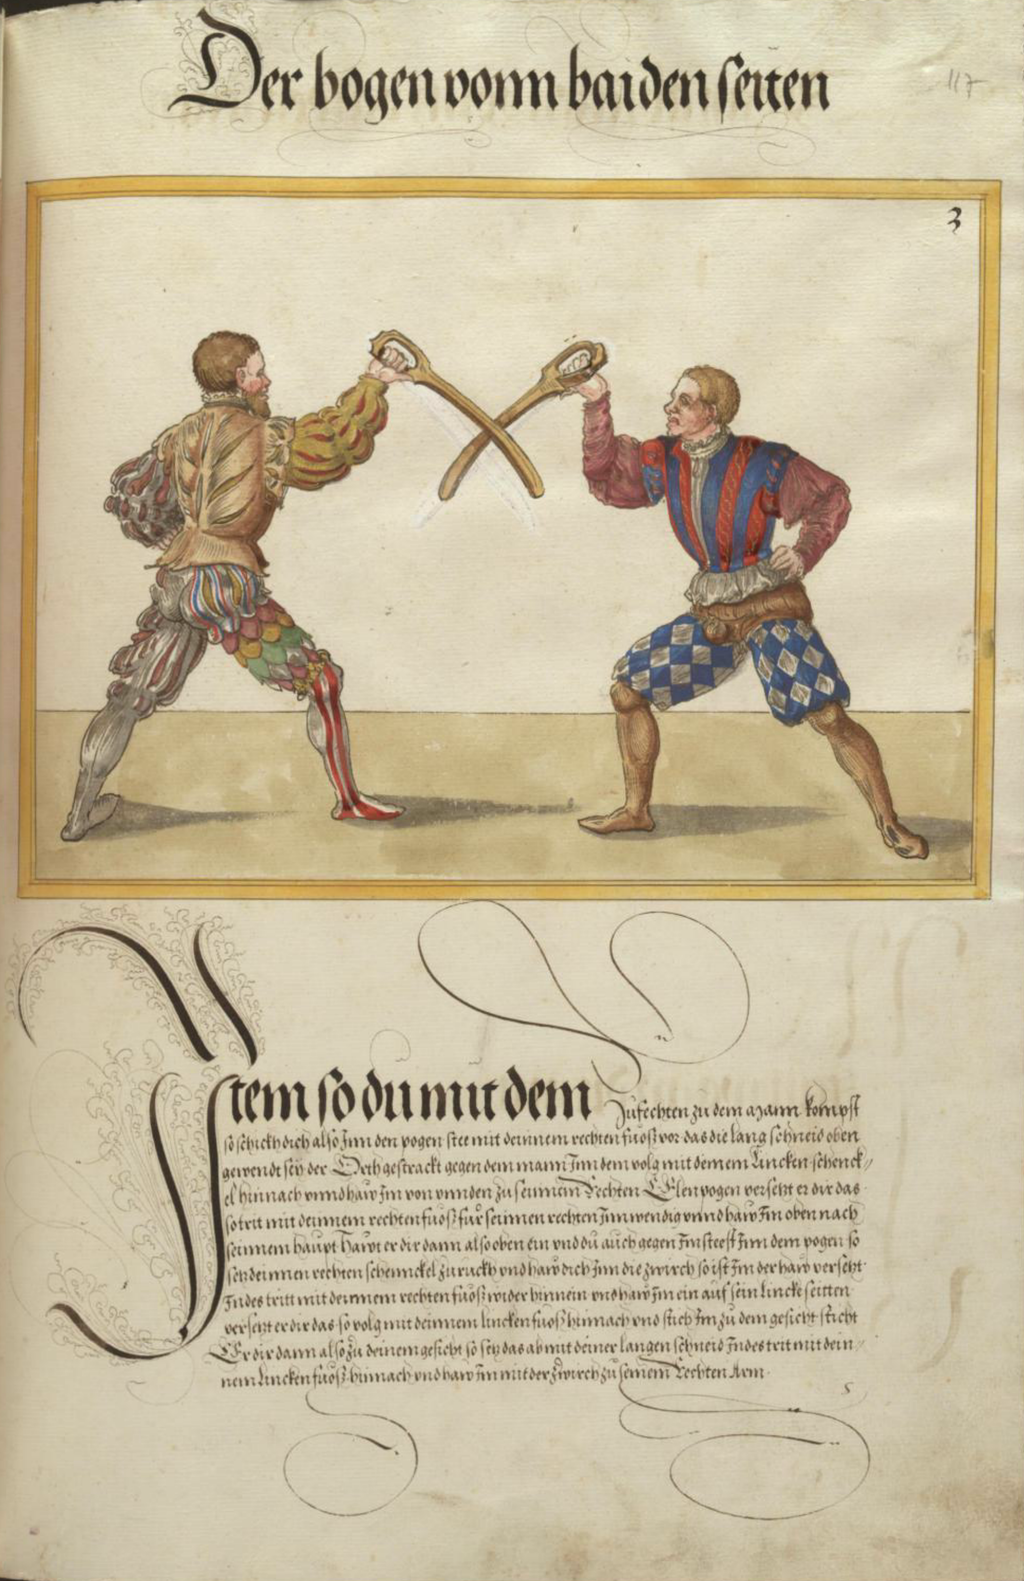 Der bogen vonn baiden seiten
117
3
Item so du mit dem Zufechten zu dem Mann kompst
so schickh dich also Inn den pogen stee mit deinnem rechten fuosz vor das die lang schneid oben
gewendt sey der Orth gestrackt gegen dem mann Inn dem volg mit deinem Lincken schenck„
el hinnach vnnd haw Im von vnnden zu seinnem Rechten Elenpogen versetzt er dir das
so trit mit deinnem rechten fuosz fur seinnen rechten Innwendig vnnd haw Im oben nach
seinnem haupt Hawt er dir dann also oben ein vnd du auch gegen Im steest Inn dem pogen so
setz deinnen rechten schennckel zuruckh vnd haw dich Inn die zwirch so ist Im der haw versetzt
Indes tritt mit deinnem rechten fuosz wider hinnein vnd haw Im ein auf sein lincke seitten
versetzt er dir das so volg mit deinnem lincken fuosz hinnach vnd stich Im zu dem gesicht sticht
Er dir dann also zu deinem gesicht so setz das ab mit deiner langen schneid Indes trit mit dein„
nem Lincken fuosz hinnach vnd haw Im mit der Zwirch zu seinem Rechten Arm